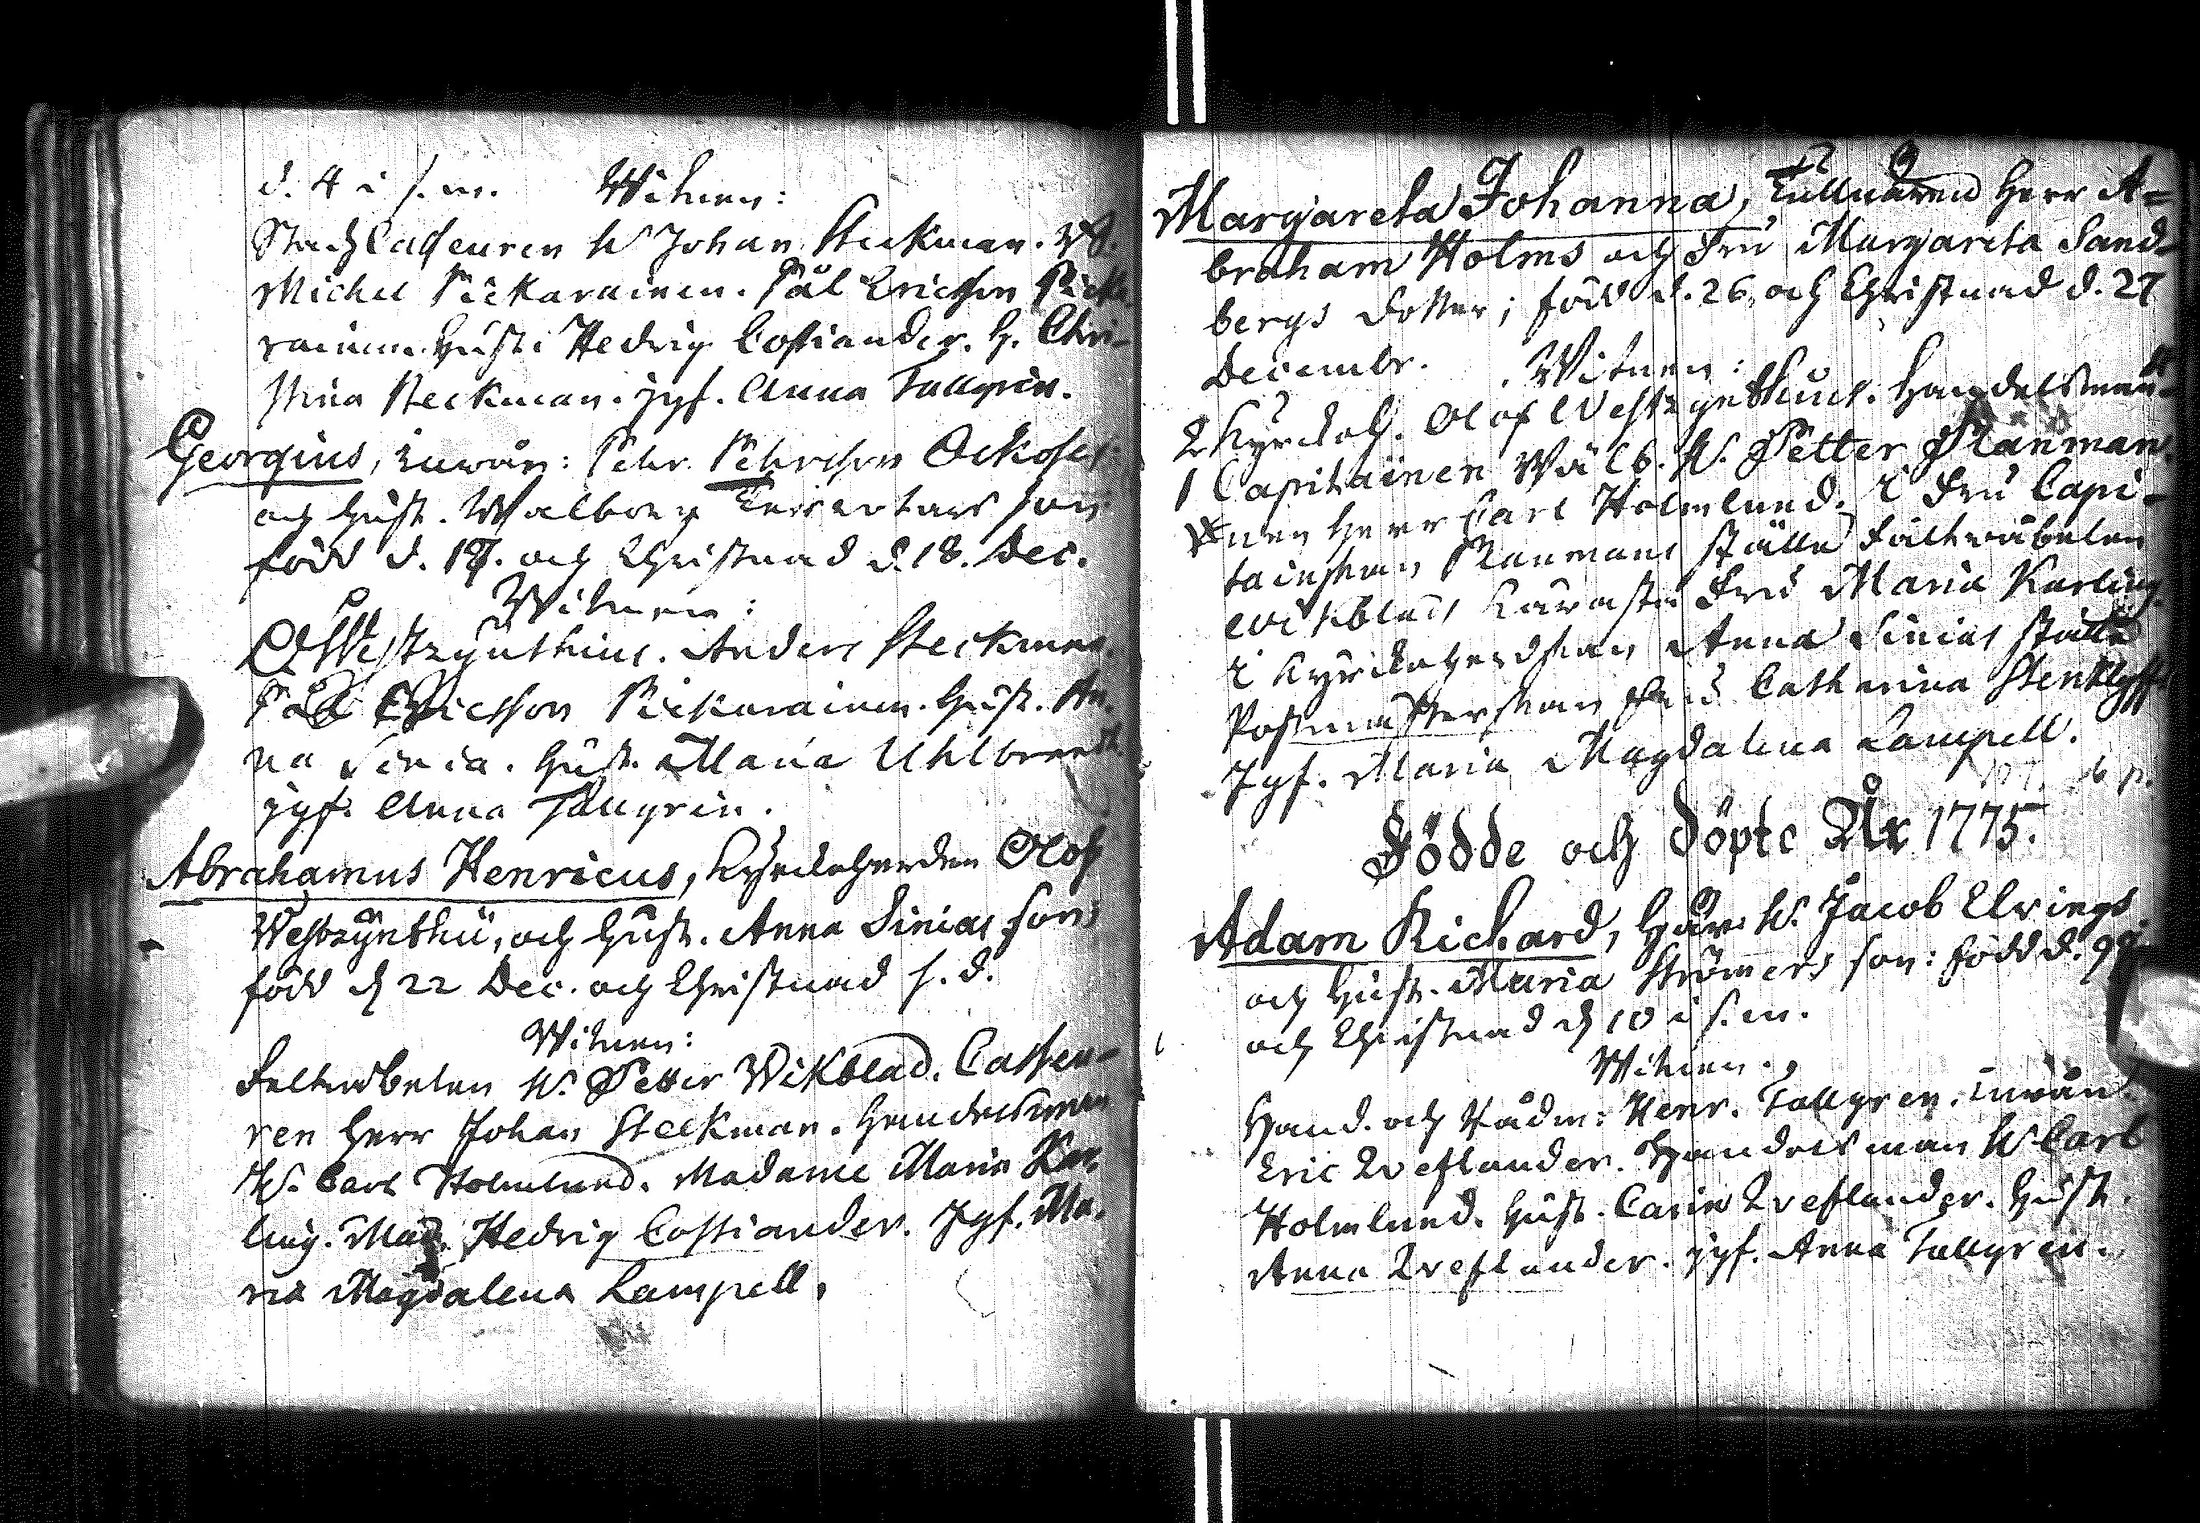 d. 4 i s. m. Witnen:
Johan Steckman.
Michel Pickarainen. Pål Ericsson Picka
rainen. Hust: Hedvig Costiander. H. Chri-
stina Steckman. jgf. Anna Tallgrén.
Georgius, Inwån: Pehr Pehrsson
och Hust. Walborg son
född d. och Christnad d. 18. Dec.
Witnen:
O Westzynthius. Anders Steckman
Pål Ericsson Pickarainen. Hust. An
na Sinia. Hust. Maria Uhlbrandt
jgf. Anna Tallgrén.
Abrahamus Henricus, Kyrckoherden Olof
Westzynthii, och Hust. Anna Sinias son;
född d 22 Dec. och Christnad s. d.
Witnen:
Feltwäbelen H. Petter Wikblad. Casseu-
ren Herr Johan Steckman. Handelsman
H. Carl Holmlund. Madame Maria Kar
ling. Mad. Hedvig Costiander. Jgf. Ma.
ria Magdalena Lampell.
Margareta Johanna, Tullnären Herr A=
braham Holms och Fru Margareta Sand-
bergs dotter; född d. 26, och Christnad d. 27
Decembr. Witnen:
2 Kyrckoh. Olof Westzynthius. Handelsman-
1 Capitainen Wälb. H. Petter Planman
nen Herr Carl Holmlund. I Fru Capi-
tainskan Planmans ställe Fältwäbelen
Wikblads Käresta Fru Maria Karling.
I Kyrckoherdskan Anna Sinias ställe
Postmästerskan Fru Catharina
Jgf. Maria Magdalena Lampell.
Födde och Döpte År 1775.
Adam Richard, H. Jacob Elvings
och Hust. Maria Strömers son: född d. 9
och Christnad d 10 i s. m.
Witnen.
Hand. och Rådm: Henr. Tallgren. Inwån.
Eric Zreflander. Handelsman H Carl
Holmlund. Hust. Carin Zreflander. Hust.
Anna Zreflander. jgf. Anna Tallgrén.